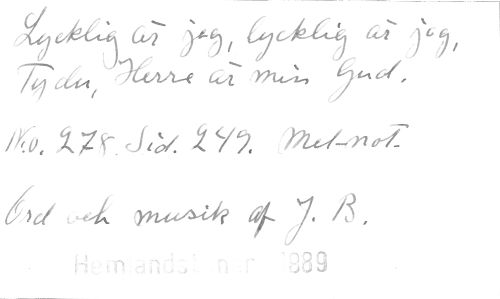 Lycklig är jag, lycklig är jag,
Ty du, Herre är min Gud.
No. 278. Sid. 249. Mel-not-
Ord och musik af J. B.
1889